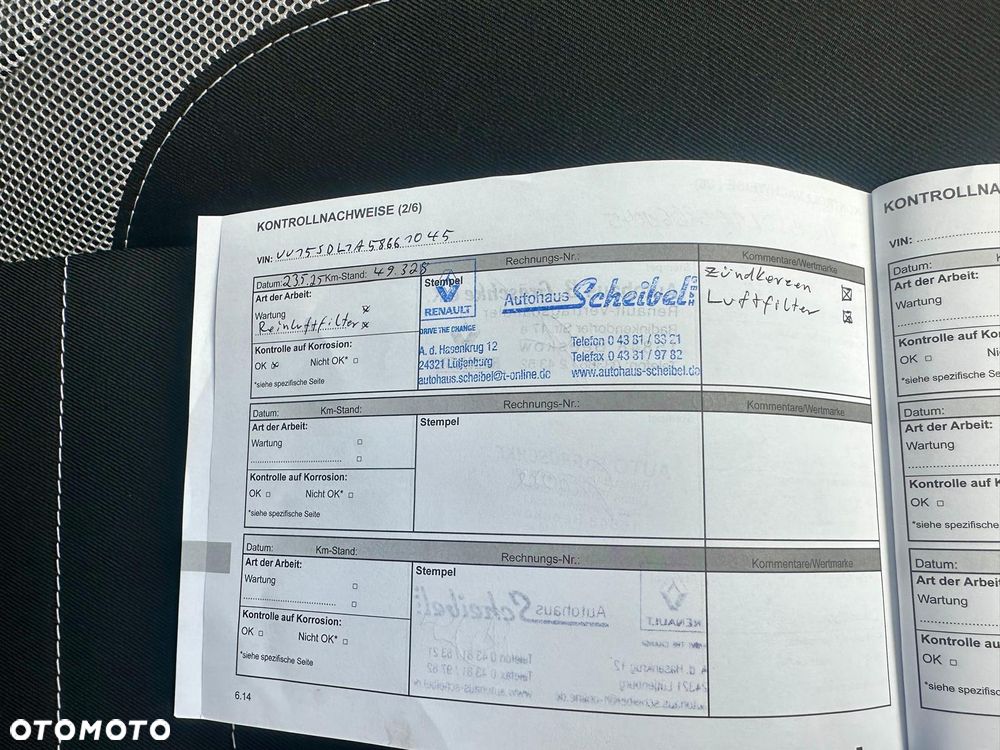 KONTROLLNACHWEISE (2/6)
VIN:
Datum: 23.5.25 Km-Stand: 49.328
Rechnungs-Nr.:
Kommentare/Wertmarke
Art der Arbeit:
Wartung
Reinluftfilter
Kontrolle auf Korrosion:
OK Nicht OK*
*siehe spezifische Seite
Stempel
RENAULT
DRIVE THE CHANGE
Autohaus Scheibel GMBH
A. d. Hasenkrug 12
24321 Lütjenburg
autohaus.scheibel@t-online.de
Telefon 0 43 81 / 83 21
Telefax 0 43 81 / 97 82
www.autohaus-scheibel.de
Zündkerzen
Luftfilter
Datum: Km-Stand: Rechnungs-Nr.: Kommentare/Wertmarke
Art der Arbeit:
Wartung
Kontrolle auf Korrosion:
OK Nicht OK*
*siehe spezifische Seite
Stempel
Datum: Km-Stand: Rechnungs-Nr.: Kommentare/Wertmarke
Art der Arbeit:
Wartung
Kontrolle auf Korrosion:
OK Nicht OK*
*siehe spezifische Seite
Stempel
6.14
KONTROLLNA
VIN:
Datum:
Art der Arbeit:
Wartung
Kontrolle auf K
OK Ni
*siehe spezifische
Datum:
Art der Arbeit:
Wartung
Kontrolle auf K
OK
*siehe spezifische
Datum:
Art der Arbei
Wartung
Kontrolle au
OK
*siehe spezifi
OTOMOTO